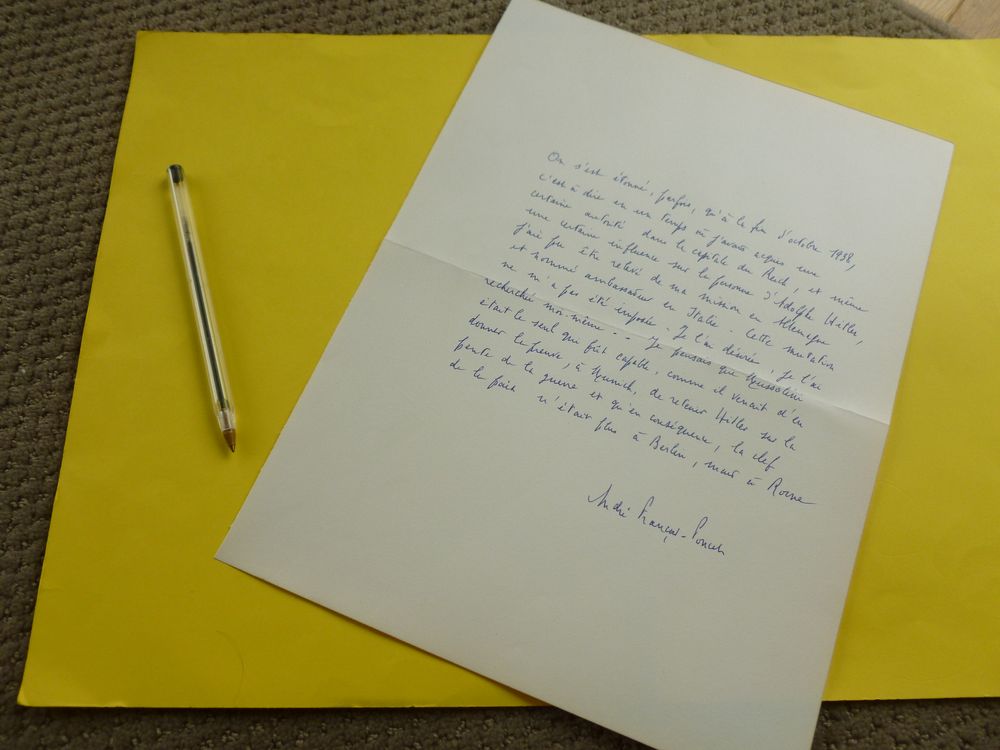 On s'est étonné, parfois, qu'à la fin d'octobre 1938,
c'est à dire en un temps où j'avais acquis une
certaine autorité dans la capitale du Reich, et même
une certaine influence sur la personne d'Adolphe Hitler,
j'aie pu être relevé de ma mission en Allemagne
et nommé ambassadeur en Italie - Cette mutation
ne m'a pas été imposée - Je l'ai désirée, je l'ai
recherchée moi-même - Je pensais que Mussolini
était le seul qui fût capable, comme il venait d'en
donner la preuve, à Munich, de retenir Hitler sur la
pente de la guerre et qu'en conséquence, la clef
de la paix n'était plus à Berlin, mais à Rome
André François-Poncet